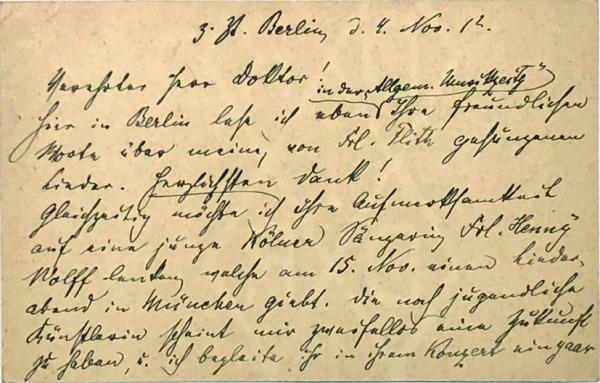 z. Zt. Berlin, d. 4. Nov. 12.
Verehrter Herr Doktor!
in der „Allgem. Musikzeitg"
hier in Berlin lese ich eben Ihre freundlichen
Worte über meine, von Frl. gesungenen
Lieder. Herzlichsten Dank!
Gleichzeitig möchte ich ihre Aufmerksamkeit
auf eine junge Kölner Sängerin Frl. Henny
Wolff lenken, welche am 15. Nov. einen Lieder-
abend in München giebt. Die noch jugendliche
Künstlerin scheint mir zweifellos eine Zukunft
zu haben, u. ich begleite ihr in ihrem Konzert ein paar